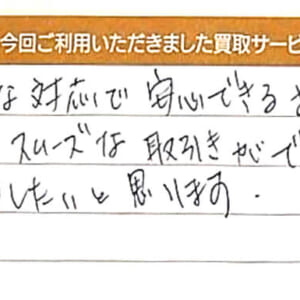 今回ご利用いただきました買取サービ
な対応で安心できる
スムーズな取引きができ
したいと思います.